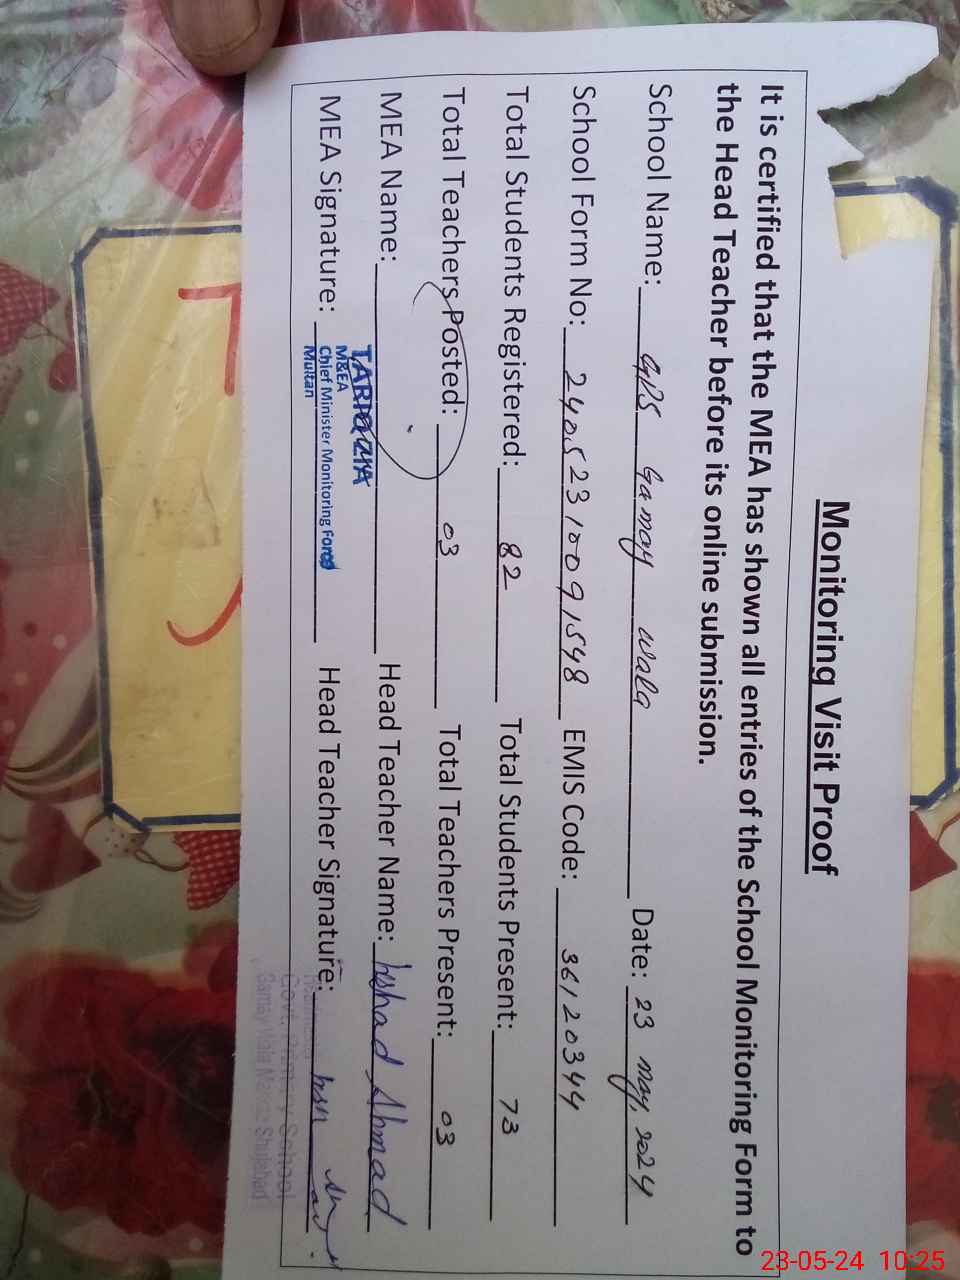 Monitoring Visit Proof
It is certified that the MEA has shown all entries of the School Monitoring Form to
the Head Teacher before its online submission.
School Name: GPS Gamay Wala Date: 23 may, 2024
School Form No: 24052310091548 EMIS Code: 36120344
Total Students Registered: 82 Total Students Present: 73
Total Teachers Posted: 03 Total Teachers Present: 03
MEA Name: Head Teacher Name: Irshad Ahmad
TARIQ ZIA
M&EA
Chief Minister Monitoring Force
Multan
MEA Signature: Head Teacher Signature:
Govt. Primary School
Gamay Wala Markaz Shujabad
23-05-24 10:25